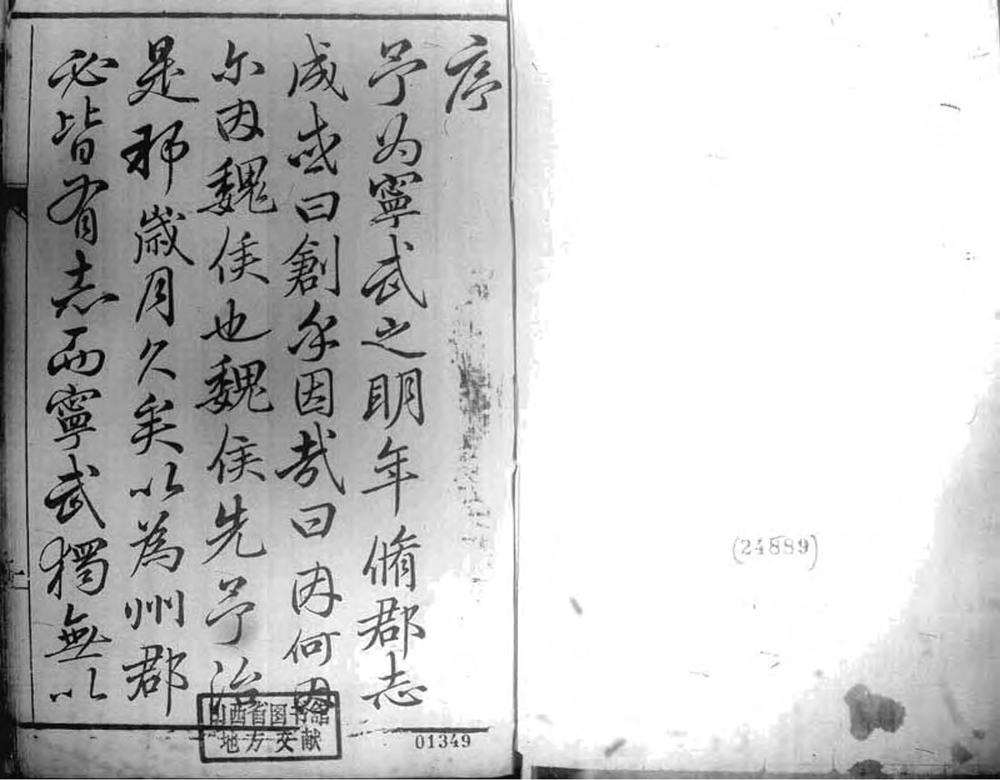 序
予为寧武之明年脩郡志
成或曰創尔因哉曰因何因
尔因魏侯也魏侯先予治
是邦歲月久矣以為州郡
必皆有志而寧武獨無以
山西省图书馆
地方文献
01349
(24889)